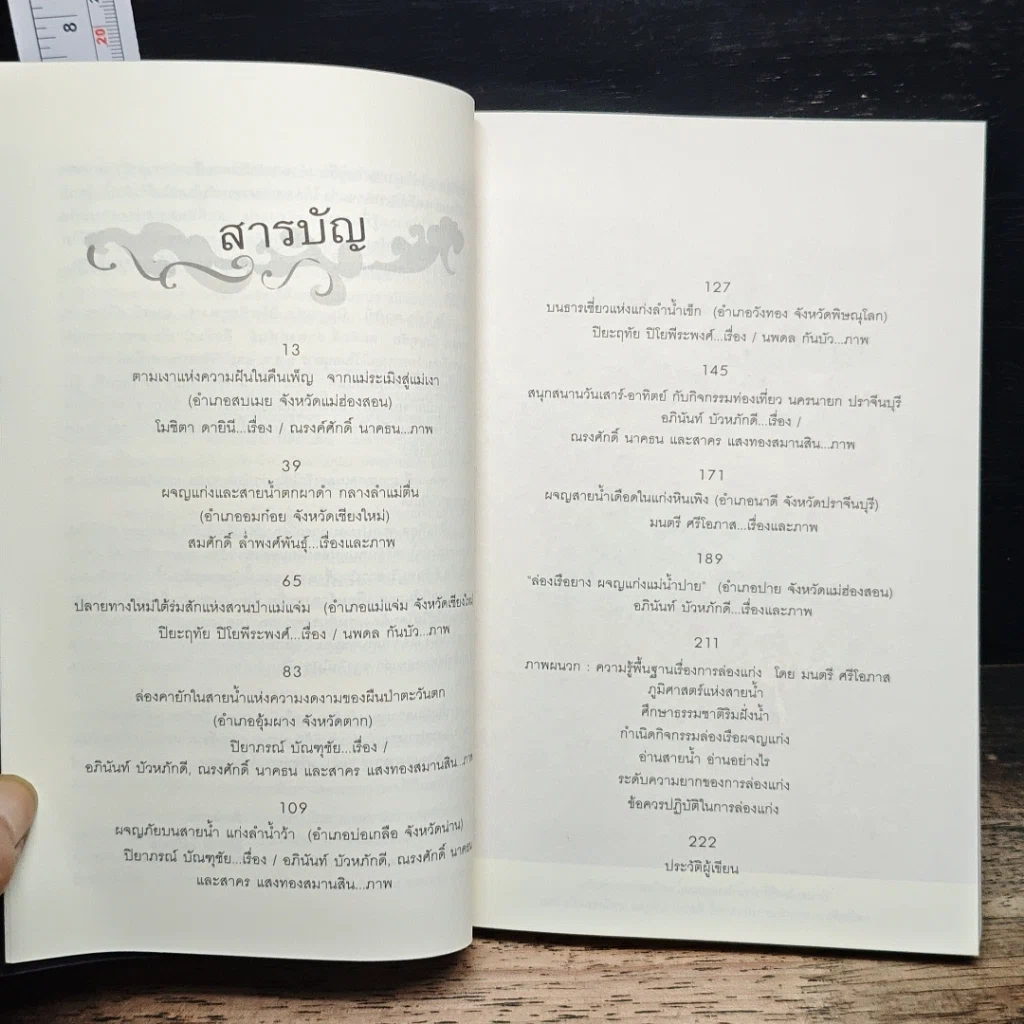 8
20
สารบัญ
13
ตามเงาแห่งความฝันในคืนเพ็ญ จากแม่ระเมิงสู่แม่เงา
(อำเภอสบเมย จังหวัดแม่ฮ่องสอน)
โมชิตา ดายินี...เรื่อง / ณรงค์ศักดิ์ นาคธน...ภาพ
39
ผจญแก่งและสายน้ำตกผาดำ กลางลำแม่ตื่น
(อำเภออมก๋อย จังหวัดเชียงใหม่)
สมศักดิ์ ล่ำพงศ์พันธุ์...เรื่องและภาพ
65
ปลายทางใหม่ใต้ร่มสักแห่งสวนป่าแม่แจ่ม (อำเภอแม่แจ่ม จังหวัดเชียงใหม่)
ปิยะฤทัย ปิโยพีระพงศ์...เรื่อง / นพดล กันบัว...ภาพ
83
ล่องคายักในสายน้ำแห่งความงดงามของผืนป่าตะวันตก
(อำเภออุ้มผาง จังหวัดตาก)
ปิยาภรณ์ บัณฑุชัย...เรื่อง /
อภินันท์ บัวหภักดี, ณรงศักดิ์ นาคธน และสาคร แสงทองสมานสิน...ภาพ
109
ผจญภัยบนสายน้ำ แก่งลำน้ำว้า (อำเภอบ่อเกลือ จังหวัดน่าน)
ปิยาภรณ์ บัณฑุชัย...เรื่อง / อภินันท์ บัวหภักดี, ณรงศักดิ์ นาคธน
และสาคร แสงทองสมานสิน...ภาพ
127
บนธารเชี่ยวแห่งแก่งลำน้ำเข็ก (อำเภอวังทอง จังหวัดพิษณุโลก)
ปิยะฤทัย ปิโยพีระพงศ์...เรื่อง / นพดล กันบัว...ภาพ
145
สนุกสนานวันเสาร์-อาทิตย์ กับกิจกรรมท่องเที่ยว นครนายก ปราจีนบุรี
อภินันท์ บัวหภักดี...เรื่อง /
ณรงศักดิ์ นาคธน และสาคร แสงทองสมานสิน...ภาพ
171
ผจญสายน้ำเดือดในแก่งหินเพิง (อำเภอนาดี จังหวัดปราจีนบุรี)
มนตรี ศรีโอภาส...เรื่องและภาพ
189
"ล่องเรือยาง ผจญแก่งแม่น้ำปาย" (อำเภอปาย จังหวัดแม่ฮ่องสอน)
อภินันท์ บัวหภักดี...เรื่องและภาพ
211
ภาพผนวก : ความรู้พื้นฐานเรื่องการล่องแก่ง โดย มนตรี ศรีโอภาส
ภูมิศาสตร์แห่งสายน้ำ
ศึกษาธรรมชาติริมฝั่งน้ำ
กำเนิดกิจกรรมล่องเรือผจญแก่ง
อ่านสายน้ำ อ่านอย่างไร
ระดับความยากของการล่องแก่ง
ข้อควรปฏิบัติในการล่องแก่ง
222
ประวัติผู้เขียน